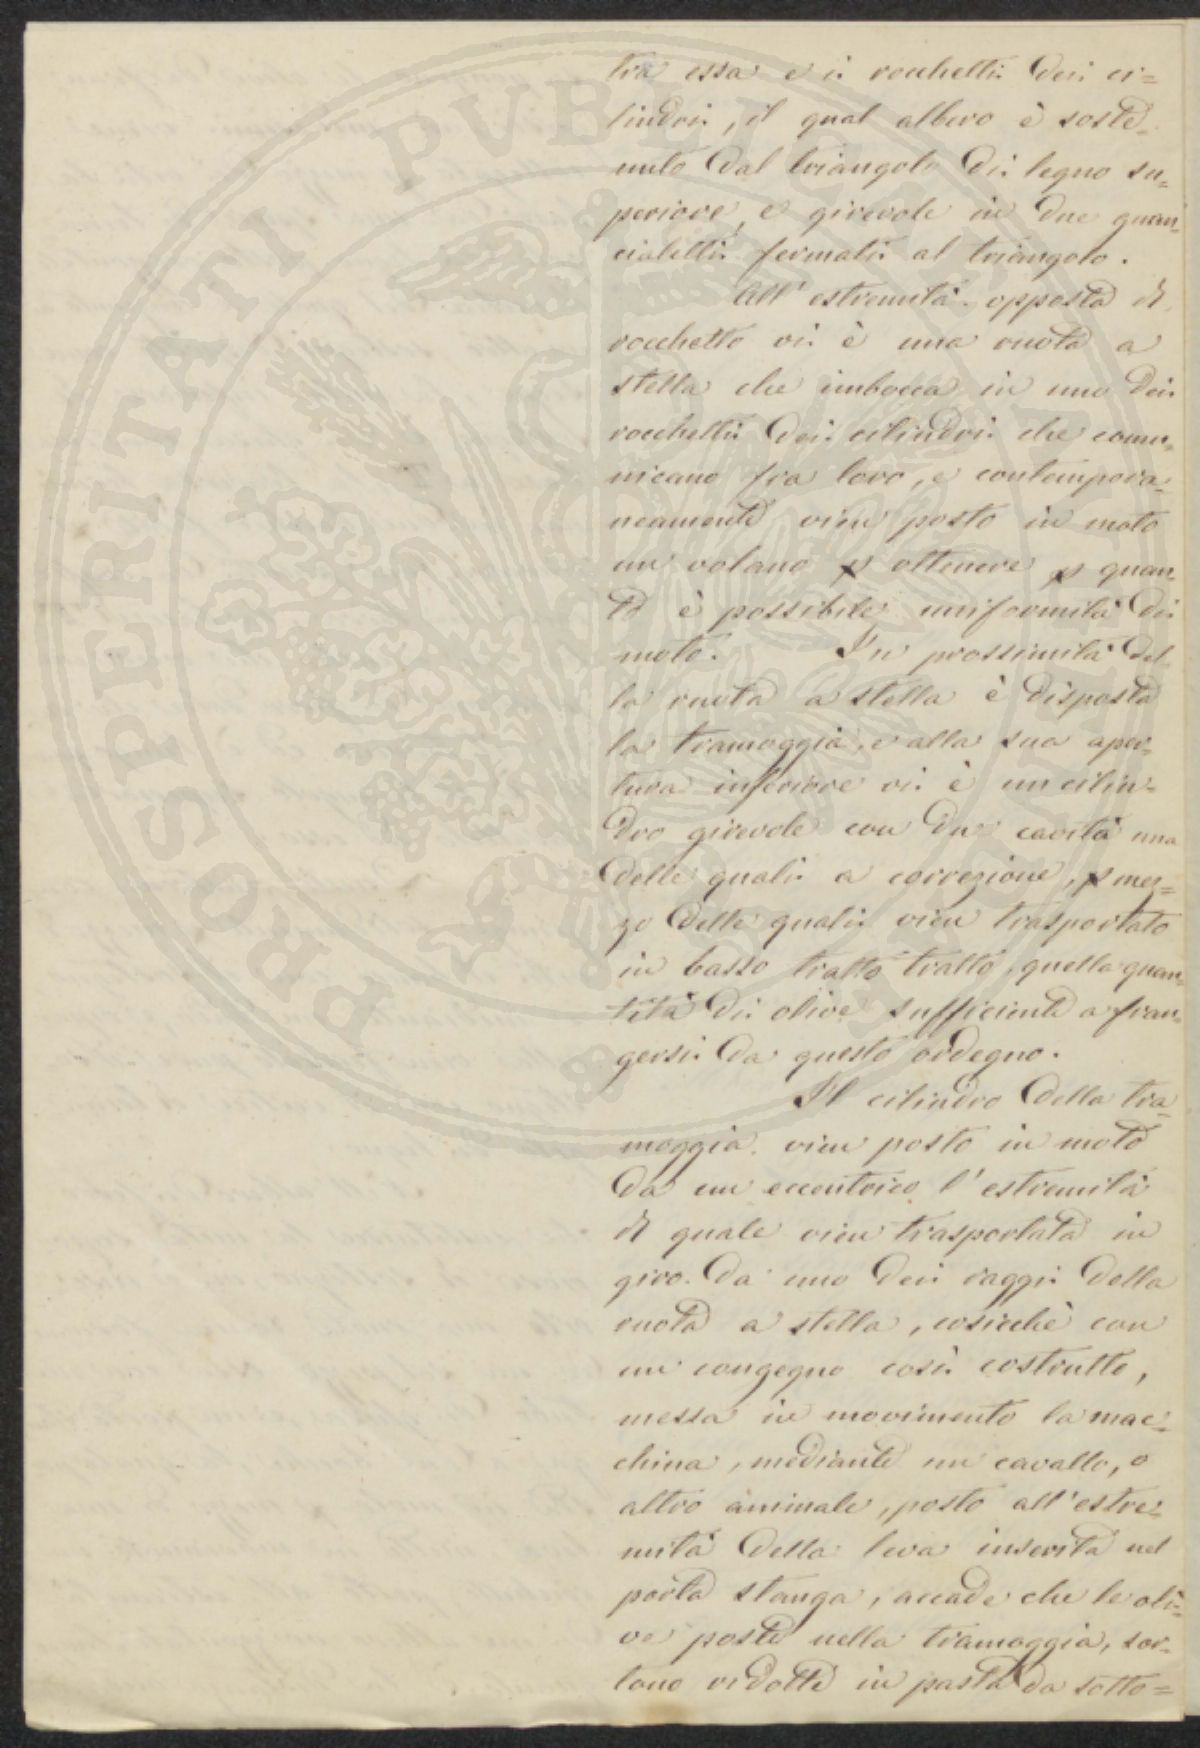 PROSPERITATI PUBLICAE
tra essa e i rocchetti dei ci=
lindri, il qual albero è soste=
nuto dal triangolo di legno su=
periore, e girevole in due guan=
cialetti fermati al triangolo.
All' estremità opposta di
rocchetto vi è una ruota a
stella che imbocca in uno dei
rocchetti dei cilindri che comu=
nicano fra loro, e contempora=
neamente vien posto in moto
un volano p ottenere p quan=
to è possibile uniformità di
moto. In prossimità del=
la ruota a stella è disposta
la tramoggia, e alla sua aper=
tura inferiore vi è un cilin=
dro girevole con due cavità una
delle quali a correzione, p mez=
zo delle quali vien trasportato
in basso tratto tratto, quella quan=
tità di olive sufficiente a fran=
gersi da questo ordegno.
Il cilindro della tra=
moggia vien posto in moto
da un eccentrico l' estremità
di quale vien trasportata in
giro da uno dei raggi della
ruota a stella, cosicchè con
un congegno così costrutto,
messa in movimento la mac=
china, mediante un cavallo, o
altro animale, posto all' estre=
mità della leva inserita nel
porta stanga, accade che le oli=
ve poste nella tramoggia, sor=
tono ridotte in pasta da sotto=